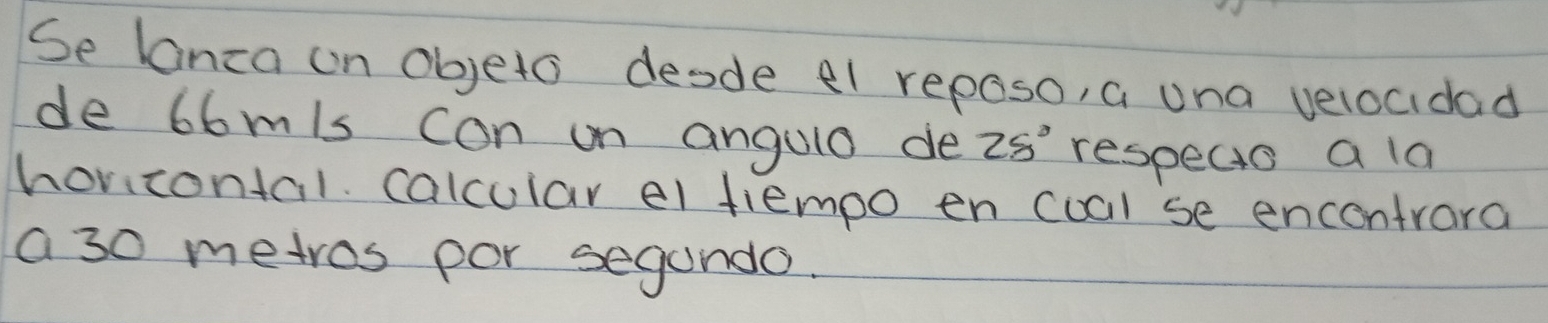 Se lanza un objeto desde el reposo, a una velocidad
de 66 m/s con un angulo de 25° respecto a la
horizontal. calcular el tiempo en cual se encontrara
a 30 metros por segundo.